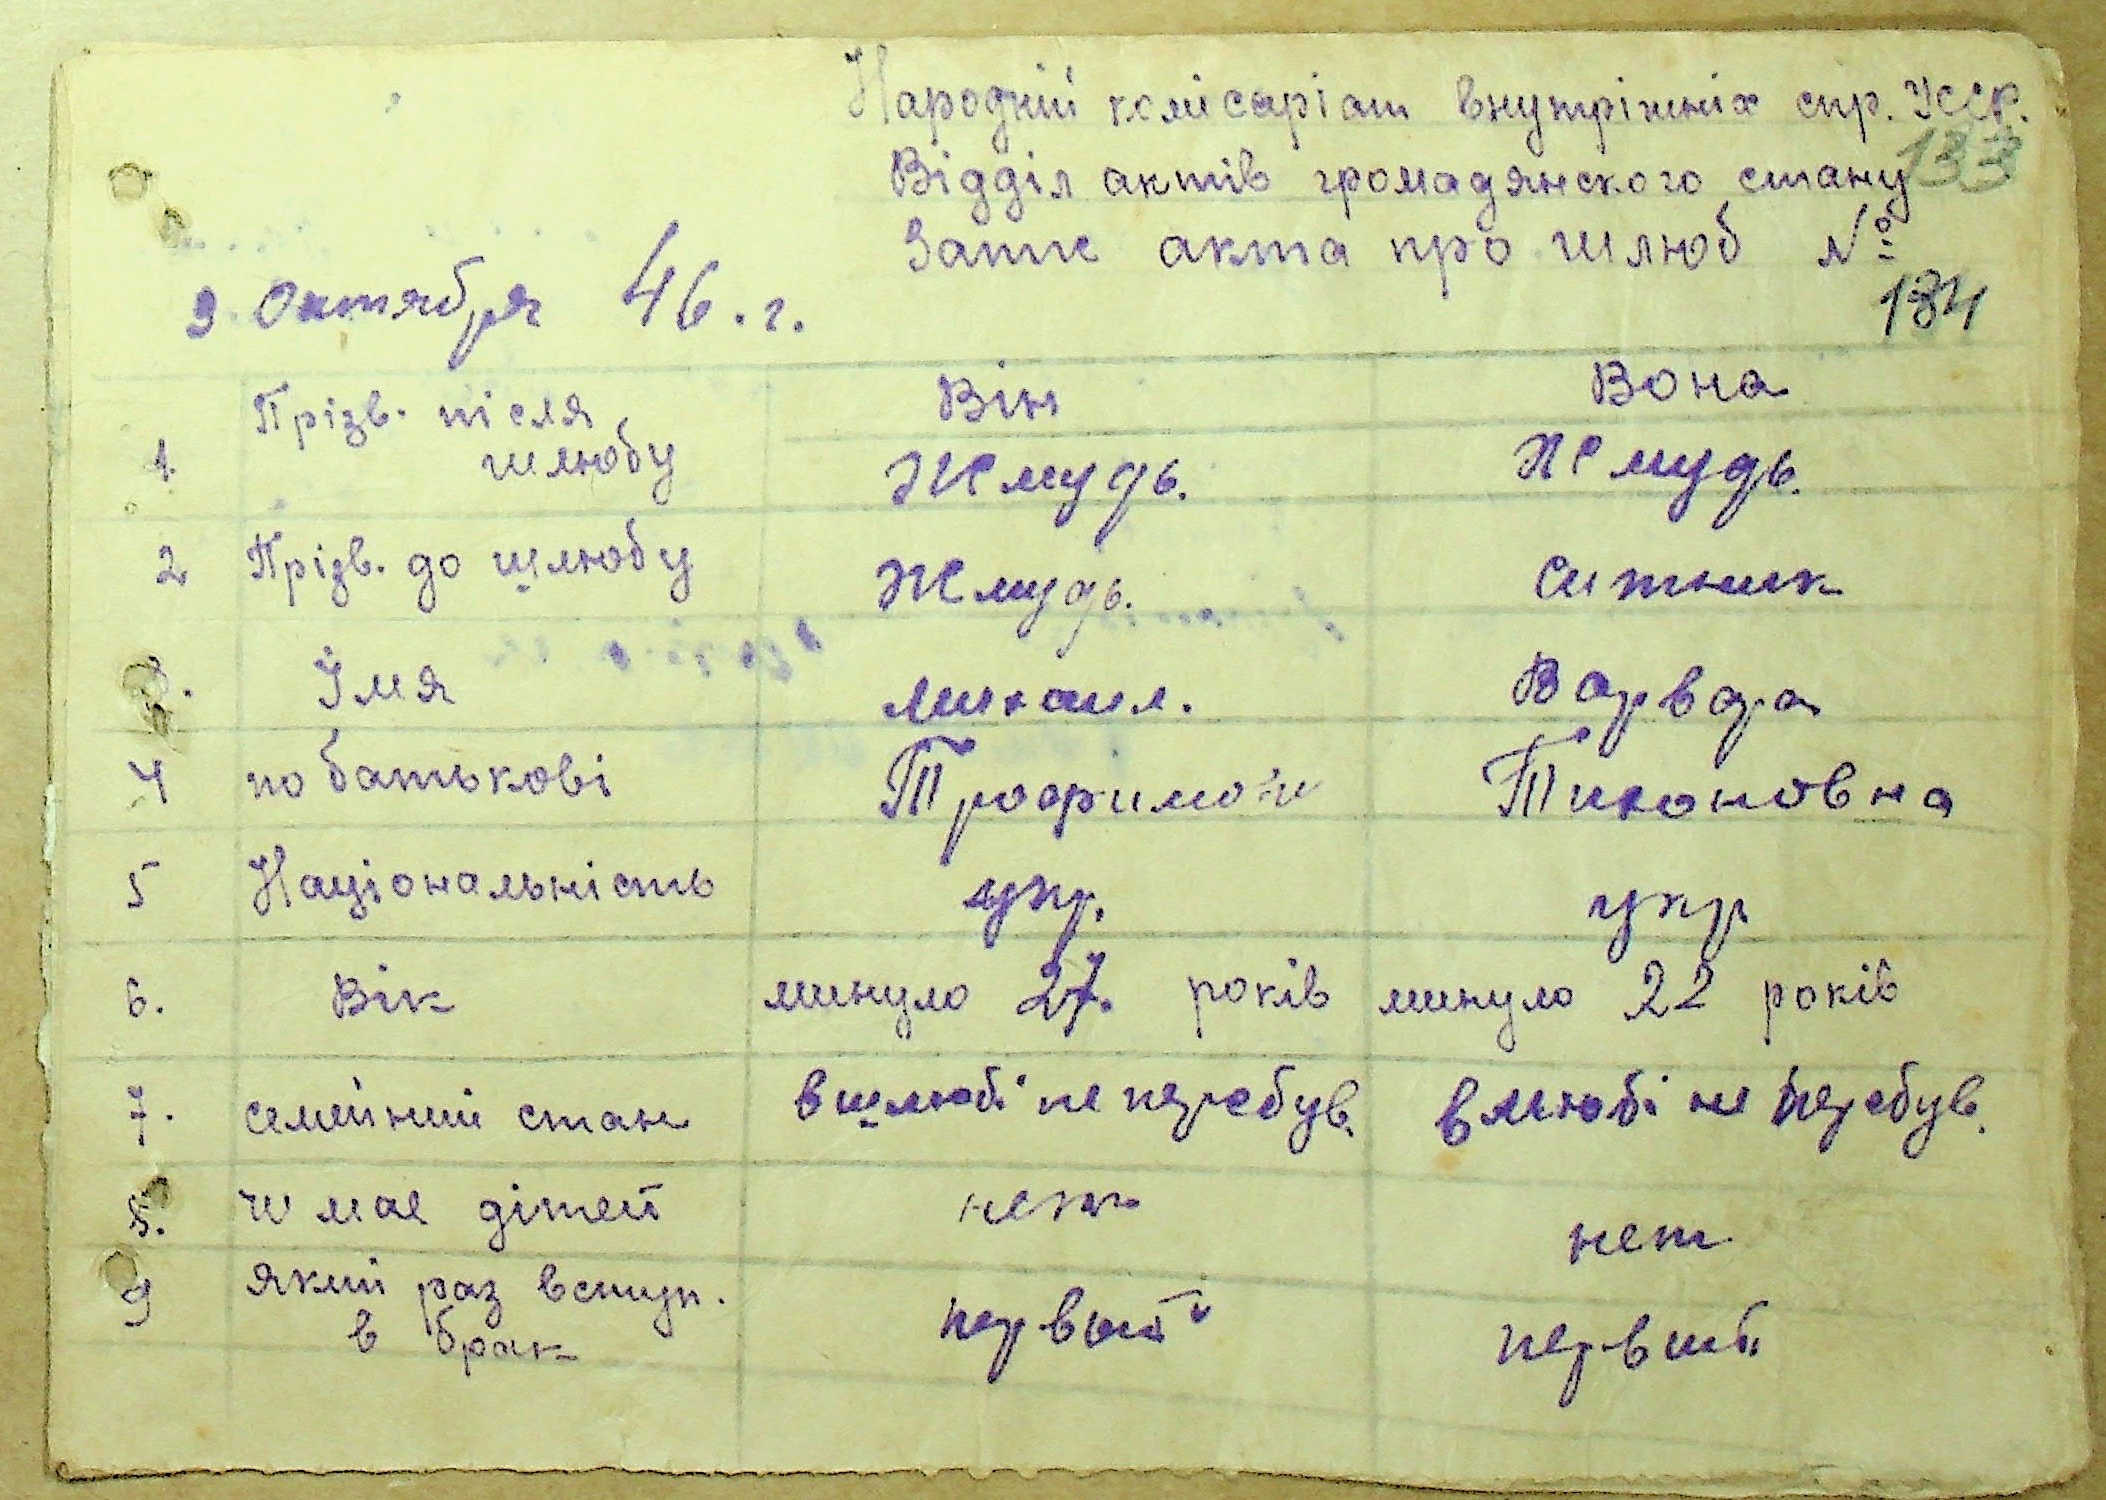 Народній комісаріат внутрішніх спр. УССР.
133
Відділ актів громадянского стану
Запис акта про шлюб №
134
9 Октября 46.г.
Він Вона
1. Прізв. після шлюбу Жмудь. Жмудь.
2 Прізв. до шлюбу Жмудь. Ситник
3. Імя Михаил. Варвара
4 по батькові Трофимови Тихоновна
5 Національність укр. укр
6. Вік минуло 27. років минуло 22 років
7. семейний стан в шлюбі не перебув. в люобі не перебув.
8. чи має дітей нет нет
9 який раз вступ.
в брак первый первий